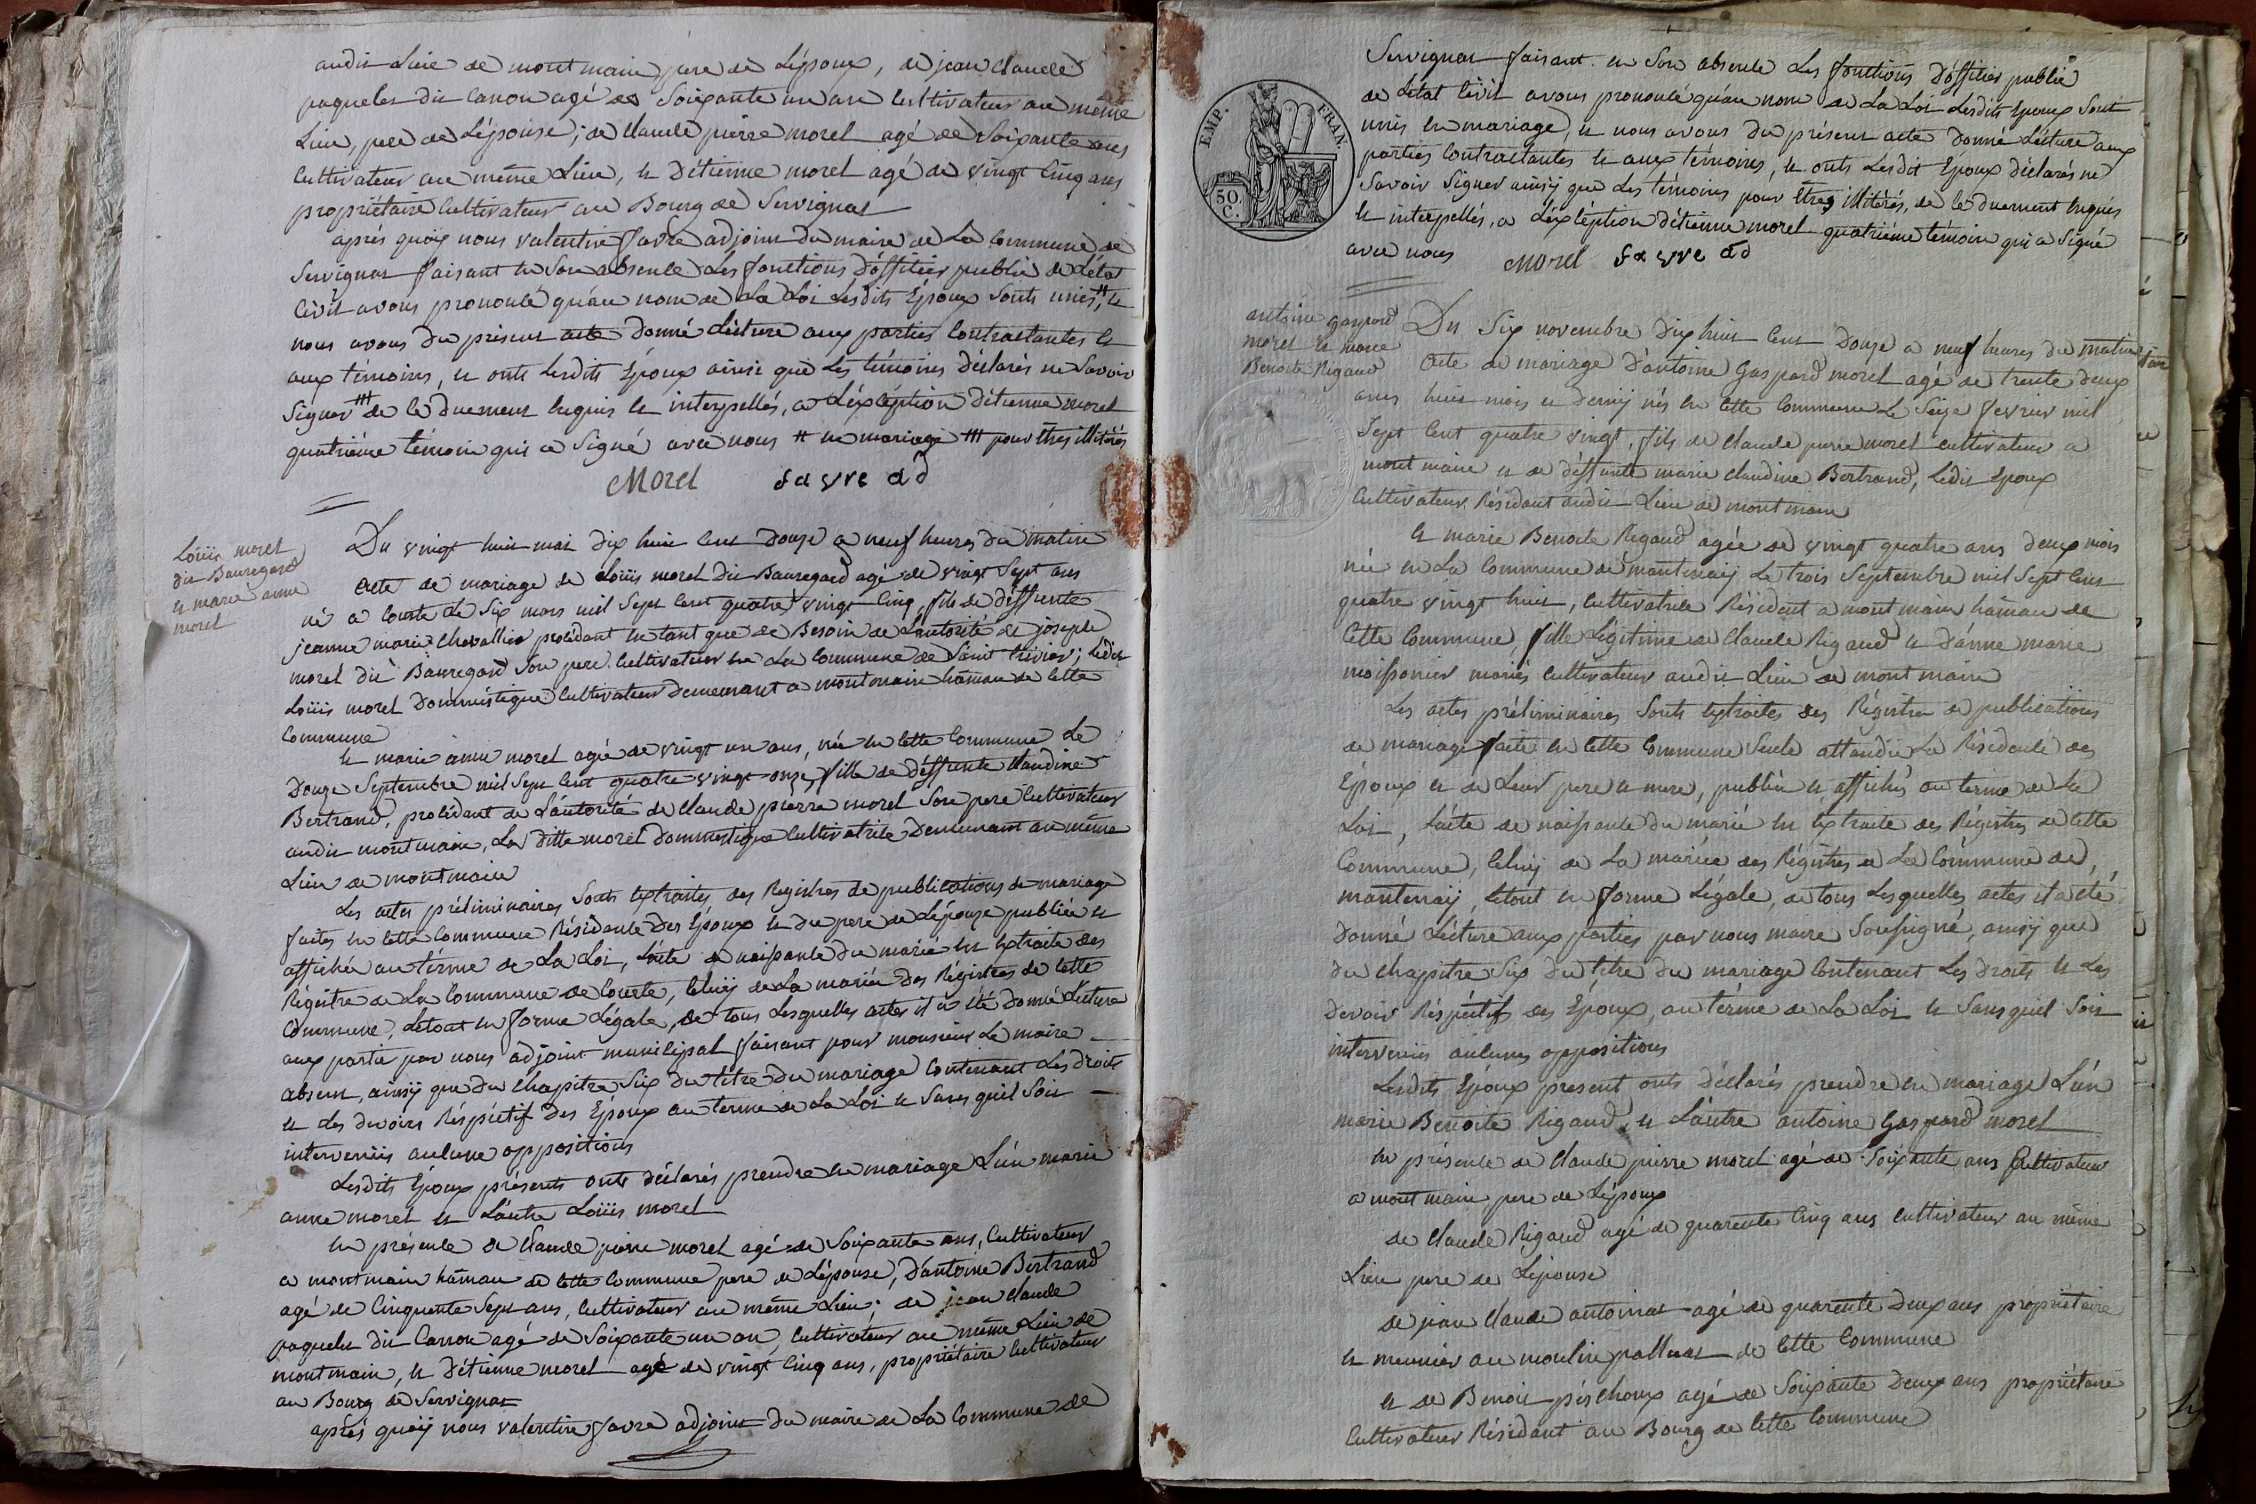 audit Lieu de montmain pere de Lépoux, de jean Claude
paquelet dit Carron agé de Soixante un an Cultivateur au même
Lieu, pere de Lépouse; de Claude pierre morel agé de Soixante ans
Cultivateur au même Lieu, et D'étienne morel agé de vingt Cinq ans
propriétaire Cultivateur au Bourg de Servignat
aprés quoÿ nous valentin favre adjoint du maire de La Commune de
Servignat faisant en Son absence Les fonctions D'offitier public de L'état
Civil avons prononcé qu'au nom de La Loi Lesdits Epoux Sonts unies # et
nous avons du présent acte donné Lécture aux parties Contractantes et
aux témoins, et onts Lesdits Epoux ainsi que Les témoins Déclarés ne Savoir
Signer ### de ce duement Enquis et interpellés, a L'éxcéption D'étienne morel
quatriéme témoin qui a Signé avec nous # en mariage ### pour êtres illitérés
Morel favre ad
Loüis morel
dit Bauregard
et marie anne
morel
Du vingt huit mai dix huit Cent Douze a neuf heures du matin
Acte de mariage de Loüis morel dit Bauregard agé de vingt Sept ans
né a Courte Le Six mars mil Sept Cent quatre vingt Cinq, fils de déffunte
jeanne marie Chevallier procédant en tant que de Besoin de L'autorité de joseph
morel dit Bauregard Son pere Cultivateur en La Commune de Saint trivier; Ledit
Loüis morel Dommestique Cultivateur demeurant a montmain hâmau de Cette
Commune
et marie anne morel agée de vingt un ans, née en Cette Commune Le
Douze Septembre mil Sept Cent quatre vingt onze, fille de déffunte Claudine
Bertrand, procédant de L'autorité de Claude pierre morel Son pere Cultivateur
audit montmain, La ditte morel Dommestique Cultivatrice Demeurant au même
Lieu de montmain
Les actes préliminaires Sonts Extraits des Registres de publications de mariage
faites en Cette Commune Résidence des Epoux et du pere de Lépouse publiée et
affichée au térme de La Loi, L'acte de naissance du marié est Extraite des
Régistre de La Commune de Courte, Celuij de La mariée des Régistres de Cette
Commune, Letout en forme Légale, de tous Lesquelles actes il a été donné Lecture
aux partie par nous adjoint municipal faisant pour monsieur Le maire
absent, ainsÿ que du Chapitre Six du titre du mariage Contenant Les droits
et Les devoirs Réspéctif des Epoux au terme de La Loi et Sans quil Soit
intervenüs aucune oppositions
Lesdits Epoux présents onts déclarés prendre en mariage L'un marie
anne morel et L'autre Loüis morel
en présence de Claude pierre morel agé de Soixante ans, Cultivateur
a montmain hâmau de Cette Commune pere de Lépouse, D'antoine Bertrand
agé de Cinquante Sept ans, Cultivateur au même Lieu; de jean Claude
paquelet dit Carron agé de Soixante un an, Cultivateur au même Lieu de
montmain, et D'étienne morel agé de vingt Cinq ans, propriétaire Cultivateur
au Bourg de Servignat
aprés quoÿ nous valentin favre adjoint du maire de La Commune de
EMP. FRAN.
50. C.
Servignat faisant en Son absence Les fonctions D'offitier public
de L'état Civil avons prononcé qu'au nom de La Loi Lesdits Epoux Sont
unis en mariage, et nous avons du présent acte donné Lécture aux
parties Contractantes et aux témoins, et onts Lesdit Epoux déclarés ne
Savoir Signer ainsij que Les témoins pour êtres illitérés, de Ce duement Enquis
et interpellés, a L'éxcéption D'étienne morel quatriéme témoin qui a Signé
avec nous Morel favre ad
antoine gaspard
morel et marie
Benoite Rigaud
Du Six novembre Dix huit Cent Douze a neuf heures du matin
Acte de mariage D'antoine Gaspard morel agé de trente deux
ans huit mois et demij nés en Cette Commune Le Seize fevrier mil
Sept Cent quatre vingt, fils de Claude pierre morel Cultivateur a
montmain et de déffunte marie Claudine Bertrand, Ledit Epoux
Cultivateur Résidant audit Lieu de montmain
et marie Benoite Rigaud agée de vingt quatre ans deux mois
née en La Commune de mantenaij Le trois Septembre mil Sept Cent
quatre vingt huit, Cultivatrice Résident a montmain hâmau de
Cette Commune, fille Légitime de Claude Rigaud et D'anne marie
moissonier mariés Cultivateur audit Lieu de montmain
Les actes préliminaires Sonts Extraites des Régistre de publications
de mariage faite en Cette Commune Seule attendu La Résidence des
Epoux et de Leur pere et mere, publiée et affichés au terme de La
Loi, L'acte de naissance du marié est Extraite des Régistres de Cette
Commune, Celuij de La mariée des Régistres de La Commune de
mantenaij, Letout en forme Légale, de tous Lesquelles actes il a été
Donné Lécture aux parties par nous maire Soussigné, ainsij que
du Chapitre Six du titre du mariage Contenant Les droits et Les
Devoir Réspéctif des Epoux, au térme de La Loi et Sans quil Soit
intervenüs aucunes oppositions
Lesdits Epoux présent onts Déclarés prendre en mariage L'un
marie Benoite Rigaud et L'autre antoine Gaspard morel
en présence de Claude pierre morel agé de Soixante ans Cultivateur
a montmain pere de Lépoux
de Claude Rigaud agé de quarente Cinq ans Cultivateur au même
Lieu pere de Lépouse
de jean Claude antoinat agé de quarente Deux ans propriétaire
et meunier au moulin palluat de Cette Commune
et de Benoit péschoux agé de Soixante Deux ans propriétaire
Cultivateur Résidant au Bourg de Cette Commune